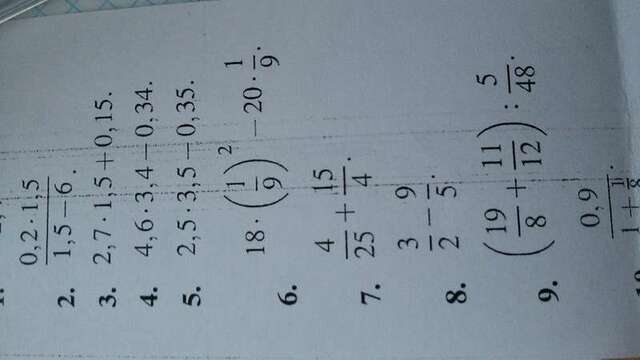 2. \frac{0,2 · 1,5}{1,5 − 6}.
3. 2,7 · 1,5 + 0,15.
4. 4,6 · 3,4 − 0,34.
5. 2,5 · 3,5 − 0,35.
6. 18 · (\frac{1}{9})^2 − 20 · \frac{1}{9}.
7. \frac{4}{25} + \frac{15}{4}.
8. \frac{3}{2} − \frac{9}{5}.
9. (\frac{19}{8} + \frac{11}{12}) : \frac{5}{48}.
\frac{0,9}{1 + \frac{1}{8}}.